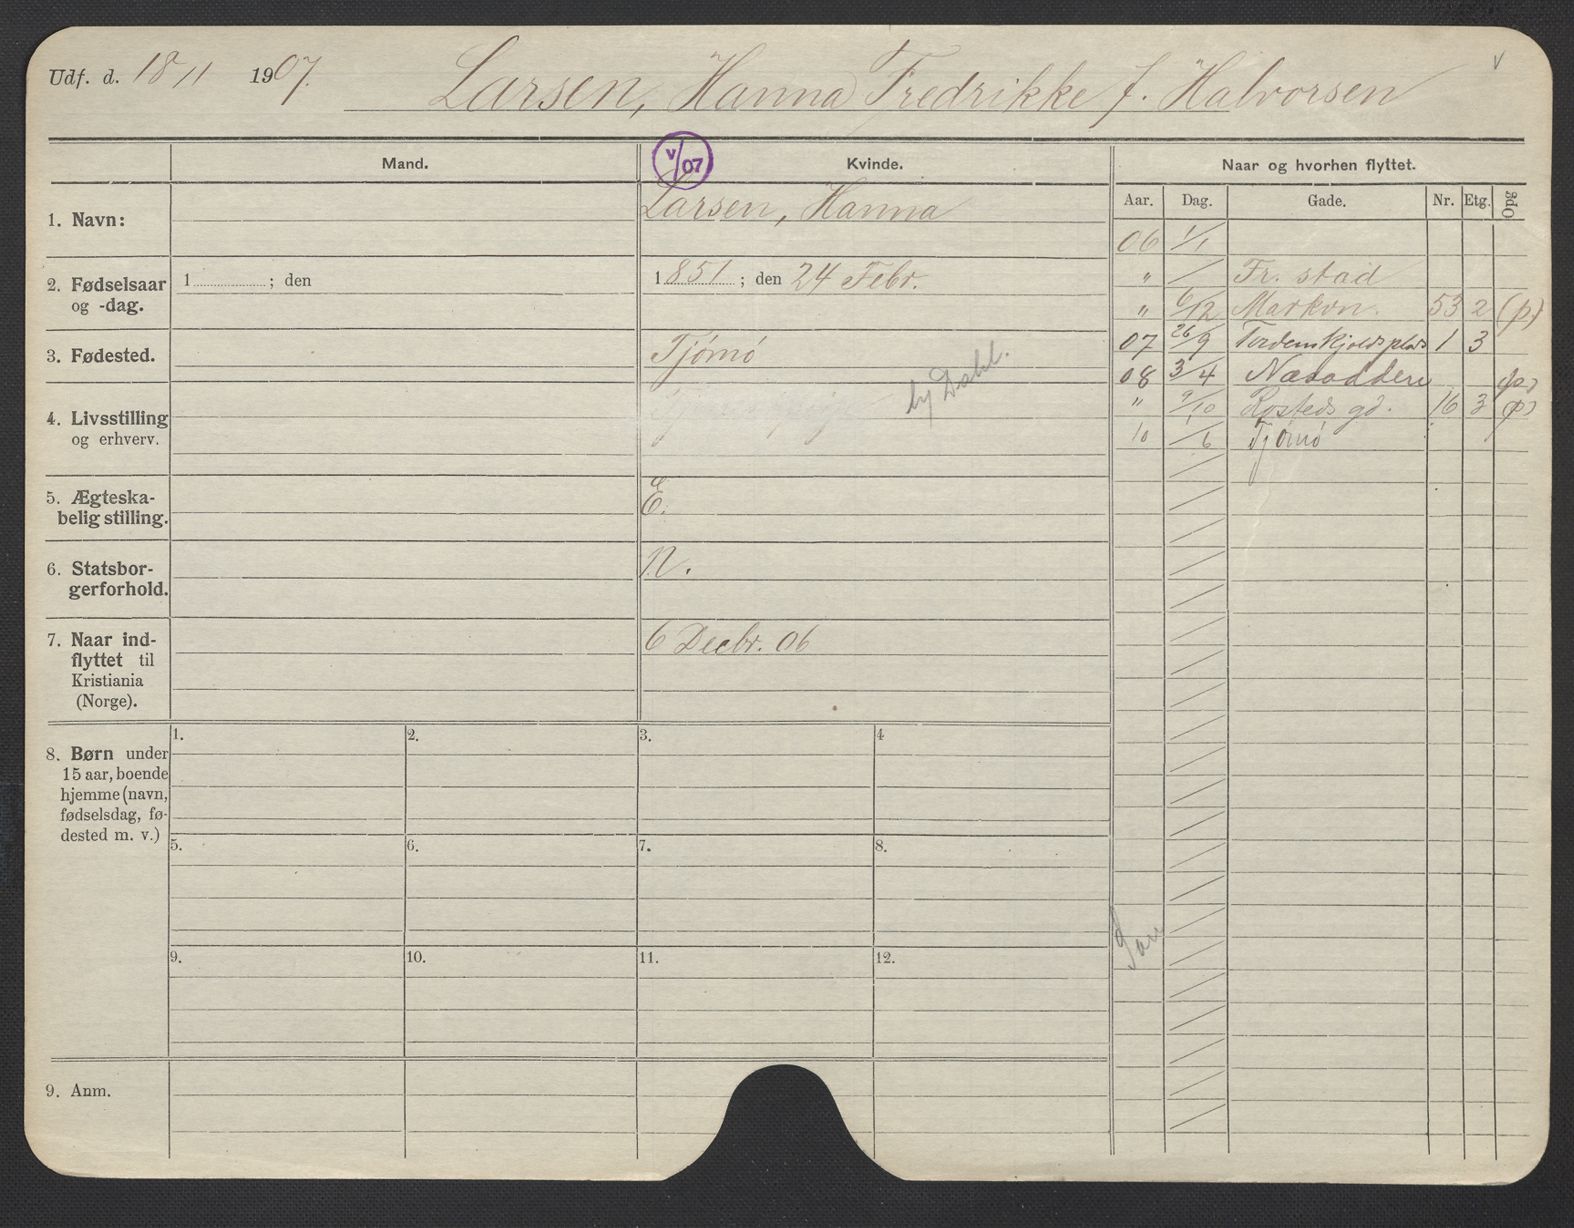 Udf. d. 18/11 1907. Larsen, Hanna Fredrikke f. Halvorsen v
Mand. v/07 Kvinde. Naar og hvorhen flyttet.
Aar. Dag. Gade. Nr. Etg. Opg
1. Navn: Larsen, Hanna
2. Fødselsaar og -dag. 1 ; den 1851 ; den 24 Febr.
3. Fødested. Tjømø
4. Livsstilling og erhverv. hj Dahl.
5. Ægteska-
belig stilling. E.
6. Statsbor-
gerforhold. N.
7. Naar ind-
flyttet til
Kristiania
(Norge). 6 Decbr. 06
06 1/1
" / Fr. stad
" 6/12 Markvn. 53 2 (p)
07 26/9 Tordenskjolds plads 1 3
08 3/4 Nesodden (p)
" 9/10 Rosteds gd. 16 3 (p)
10 /6 Tjømø
8. Børn under
15 aar, boende
hjemme (navn,
fødselsdag, fø-
dested m. v.)
1. 2. 3. 4
5. 6. 7. 8.
9. 10. 11. 12.
9. Anm.